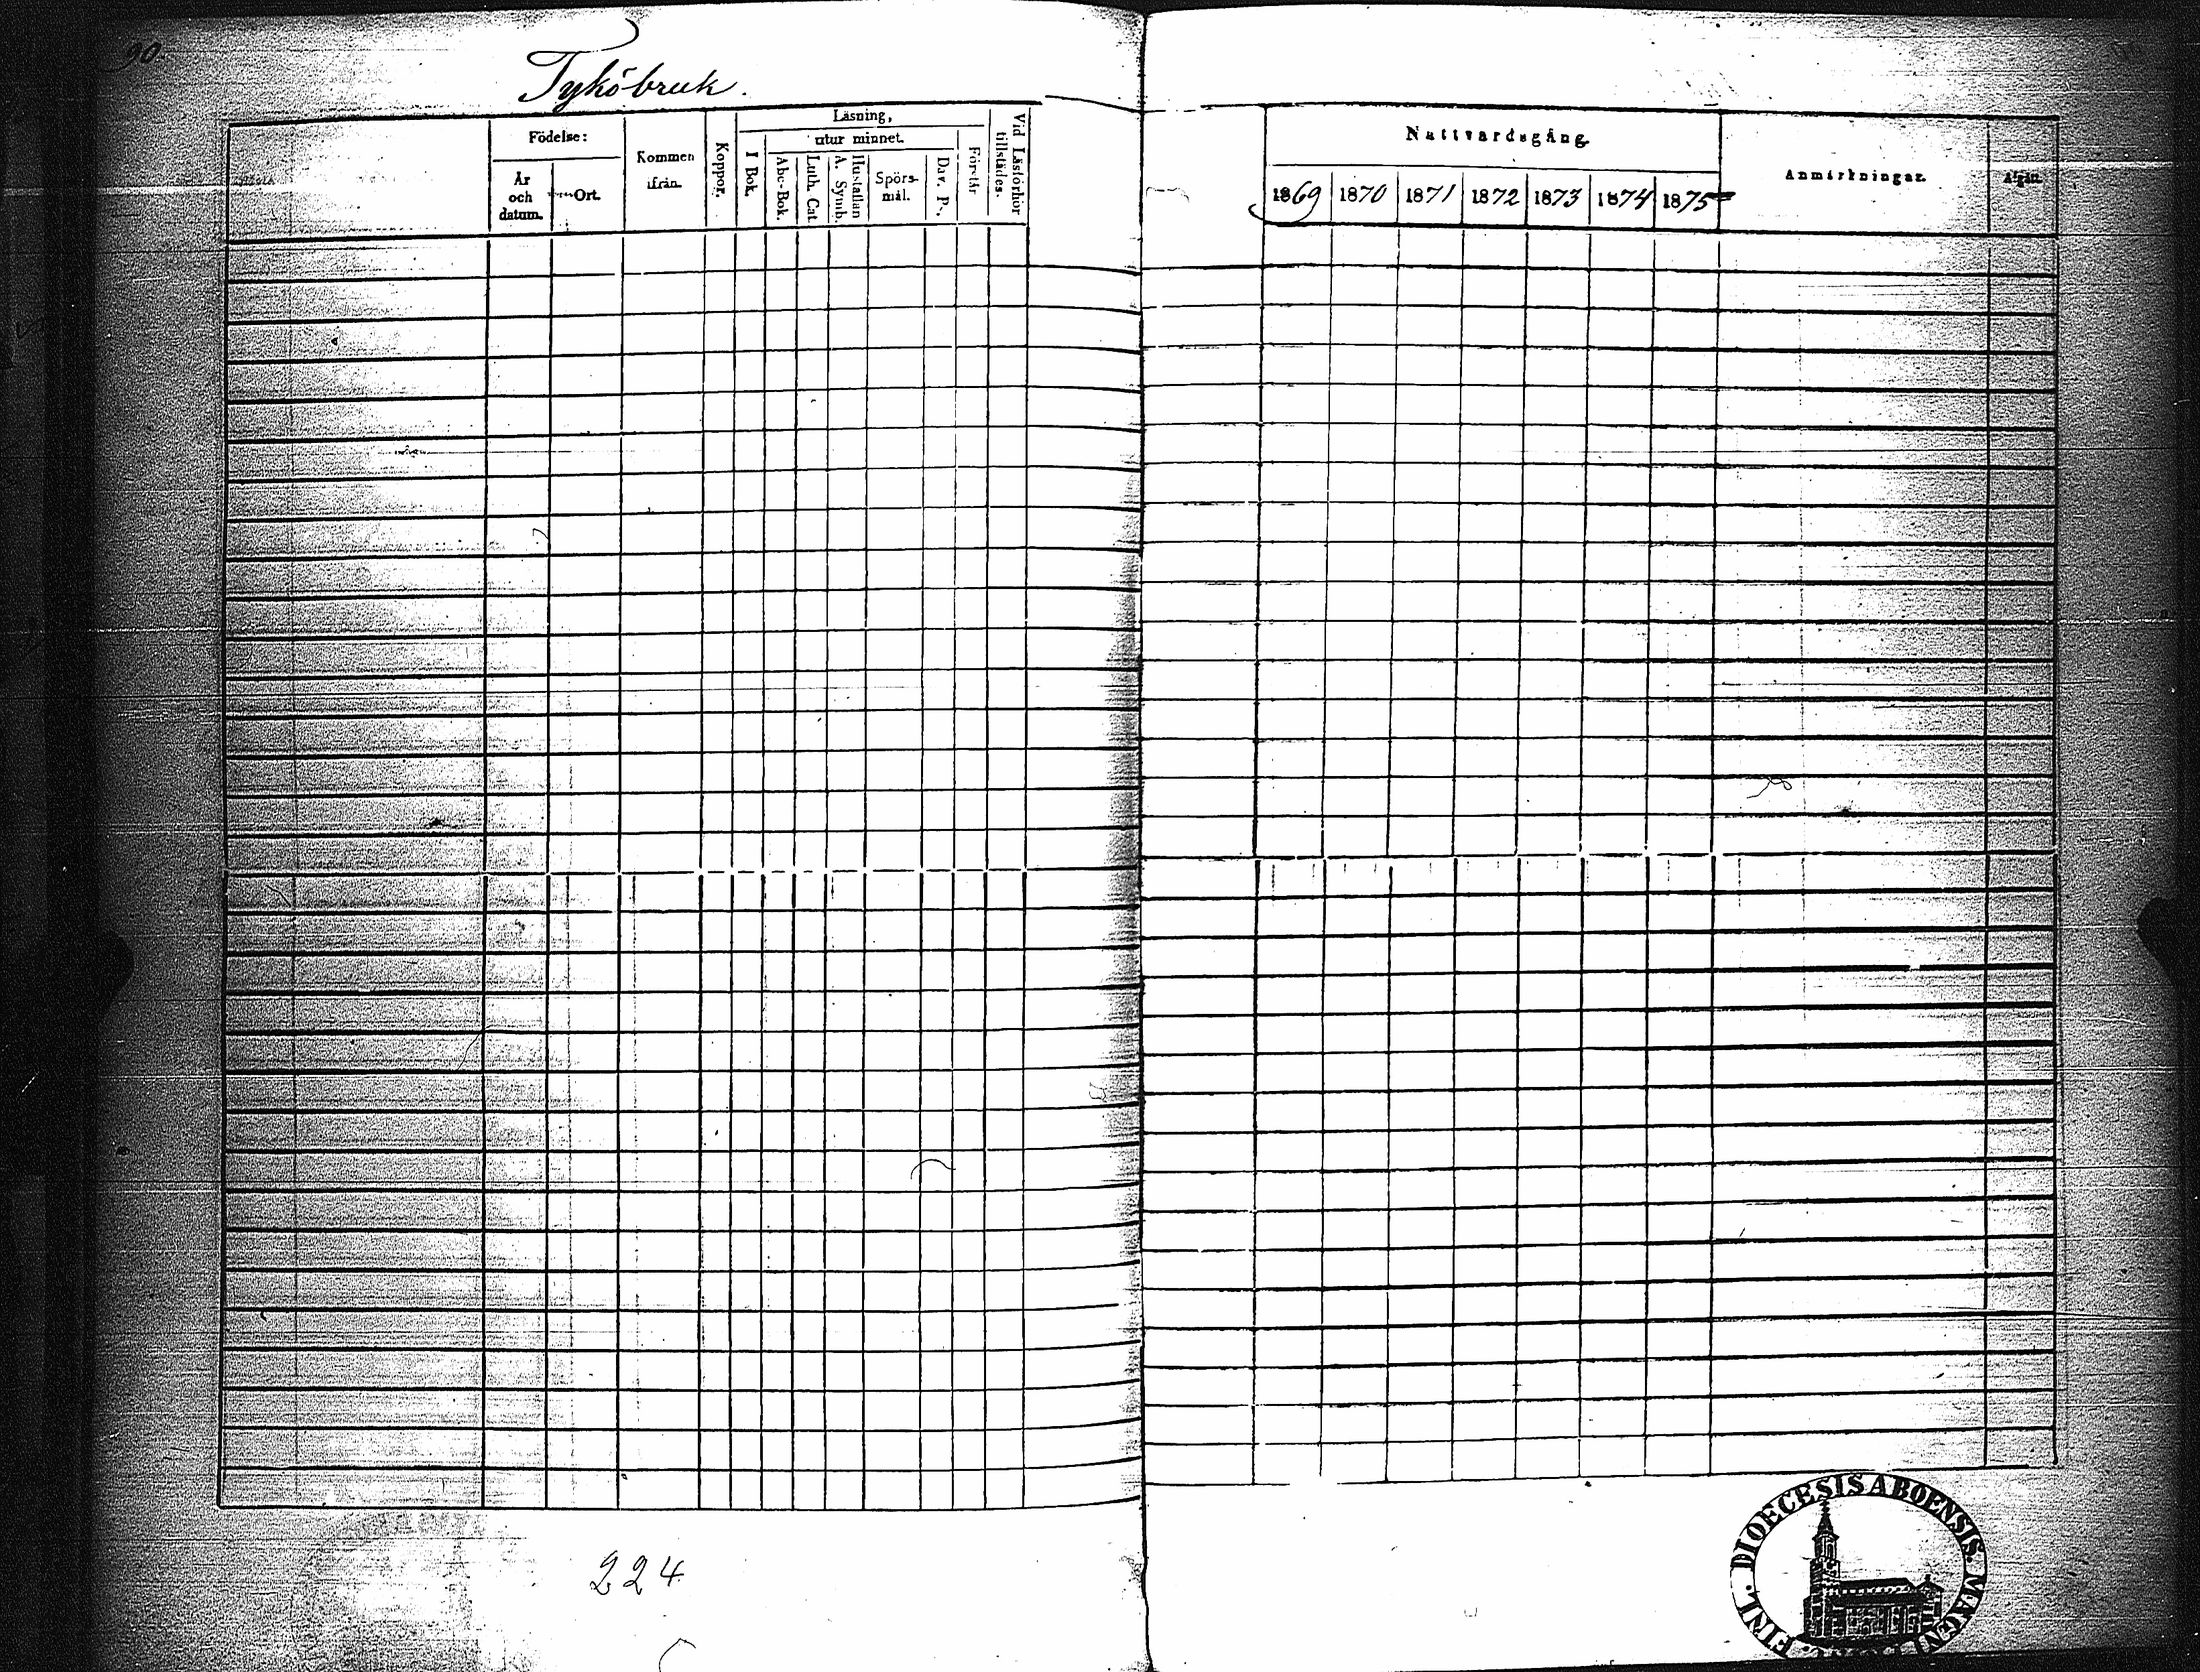 90.
Tykö bruk.
Födelse:
År
och
datum.
Ort.
Kommen
ifrån.
Koppor.
Läsning,
I Bok.
utur minnet.
Abc-Bok.
Luth. Cat.
Hustaflan
A. Symb.
Spörs-
mål.
Dav. P.
Förstår
Vid Läsförhör
tillstädes.
Nattvardsgång.
1869 1870 1871 1872 1873 1874 1875
Anmärkningar.
Afgått.
224
FINL. DIOECESIS ABOENSIS. MAGNI